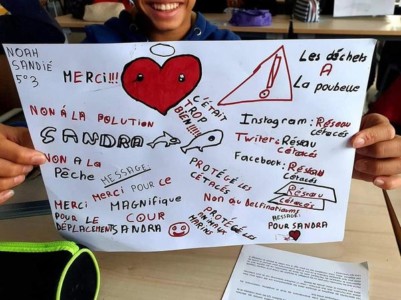 NOAH
SANDIÉ
5°3
MERCI!!!
C'ÉTAIT
TROP
BIEN!!!!
Les déchets
A
La poubelle
NON À LA POLUTION
SANDRA
NON A La
Pêche
MESSAGE
MERCI POUR CE
MERCI MAGNIFIQUE
POUR LE COUR
DÉPLACEMENT SANDRA
PROTÉGÉ LES
CÉTACÉS
Non au Delfinariums
PROTÉGÉ LES
ANIMAUX
MARINS
Instagram: Réseau
cétacés
Twiter: Réseau
cétacés
Facebook: Réseau
Cétacés
Réseau
cétacés
MESSAGE
POUR SANDRA